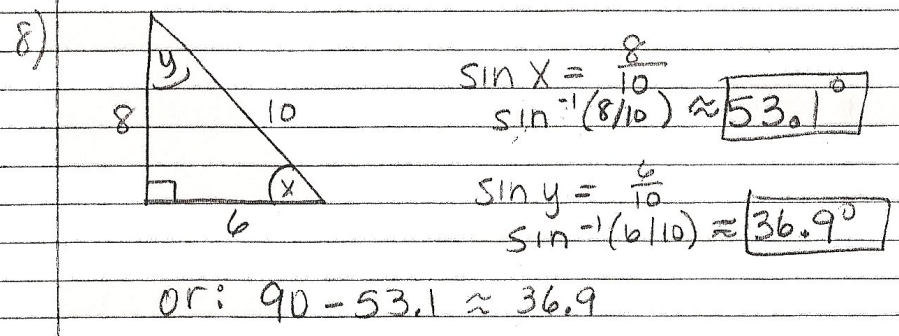 8)
y
8
10
x
6
sin x = 8/10
sin⁻¹(8/10) ≈ 53.1°
sin y = 6/10
sin⁻¹(6/10) ≈ 36.9°
or: 90 - 53.1 ≈ 36.9